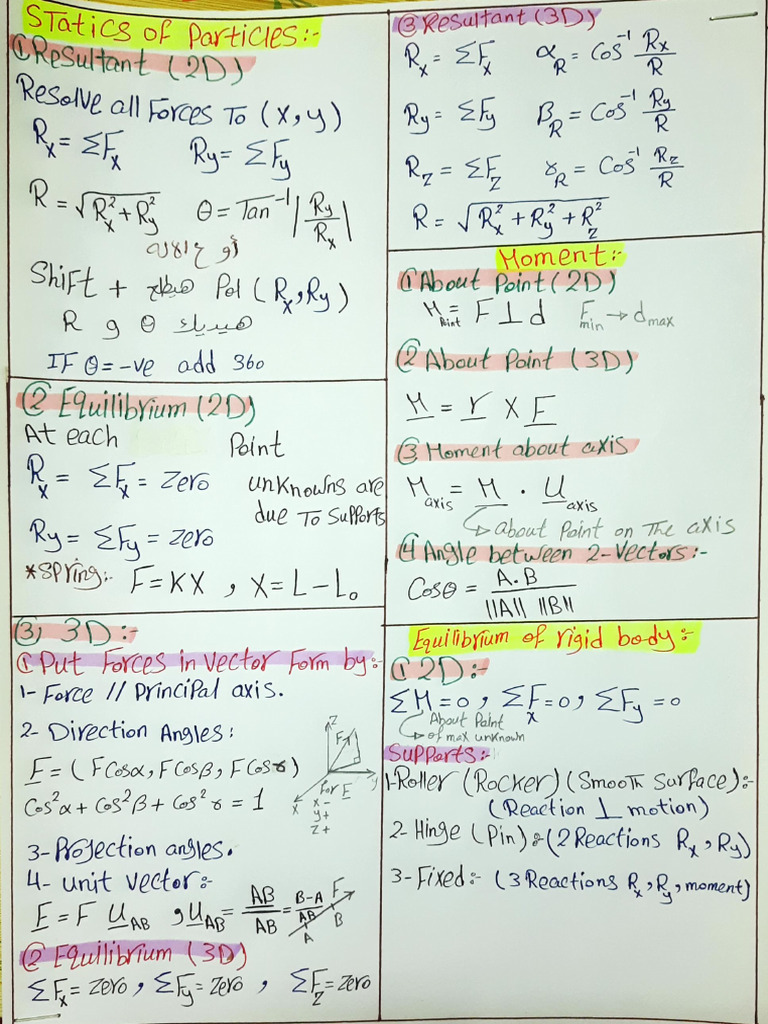 Statics of Particles:-
① Resultant (2D)
Resolve all Forces To (x, y)
Rx = ΣFx   Ry = ΣFy
R = √(Rx² + Ry²)   θ = Tan⁻¹ |Ry/Rx|
أو
Shift + هيطلع Pol (Rx, Ry)
R و θ هيديك
IF θ = -ve add 360
② Equilibrium (2D)
At each Point
Rx = ΣFx = Zero
unknowns are
due To Supports
Ry = ΣFy = zero
*Spring:- F = KX , X = L - L₀
③, 3D:-
① Put Forces in Vector Form by:-
1- Force // Principal axis.
2- Direction Angles:
F = (F Cosα, F Cosβ, F Cosɣ)
Cos²α + Cos²β + Cos²ɣ = 1
z
F
y
x
For F
x -
y +
z +
3- Projection angles.
4- unit vector:-
F = F U_AB , U_AB = AB/AB = B-A/AB
F
B
A
② Equilibrium (3D)
ΣFx = Zero, ΣFy = Zero , ΣFz = Zero
③ Resultant (3D)
Rx = ΣFx   αR = Cos⁻¹ Rx/R
Ry = ΣFy   βR = Cos⁻¹ Ry/R
Rz = ΣFz   ɣR = Cos⁻¹ Rz/R
R = √(Rx² + Ry² + Rz²)
Moment:-
① About Point (2D)
M Point = F ⊥ d   F min → d max
② About Point (3D)
M = r X F
③ Moment about axis
M axis = M . U axis
about Point on The axis
④ Angle between 2-Vectors:-
Cosθ = A.B / ||A|| ||B||
Equilibrium of rigid body:-
① 2D:-
ΣM = 0, ΣFx = 0, ΣFy = 0
About Point
of max unknown
Supports:-
1- Roller (Rocker) (Smooth Surface):-
(Reaction ⊥ motion)
2- Hinge (Pin):- (2 Reactions Rx, Ry)
3- Fixed:- (3 Reactions Rx, Ry, moment)